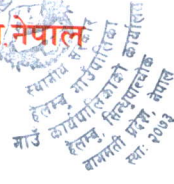 नेपाल
स्थानीय सरकार
हेलम्बु गाउँपालिका
गाउँ कार्यपालिकाको कार्यालय
हेलम्बु, सिन्धुपाल्चोक
बागमती प्रदेश, नेपाल
स्था: २०७३